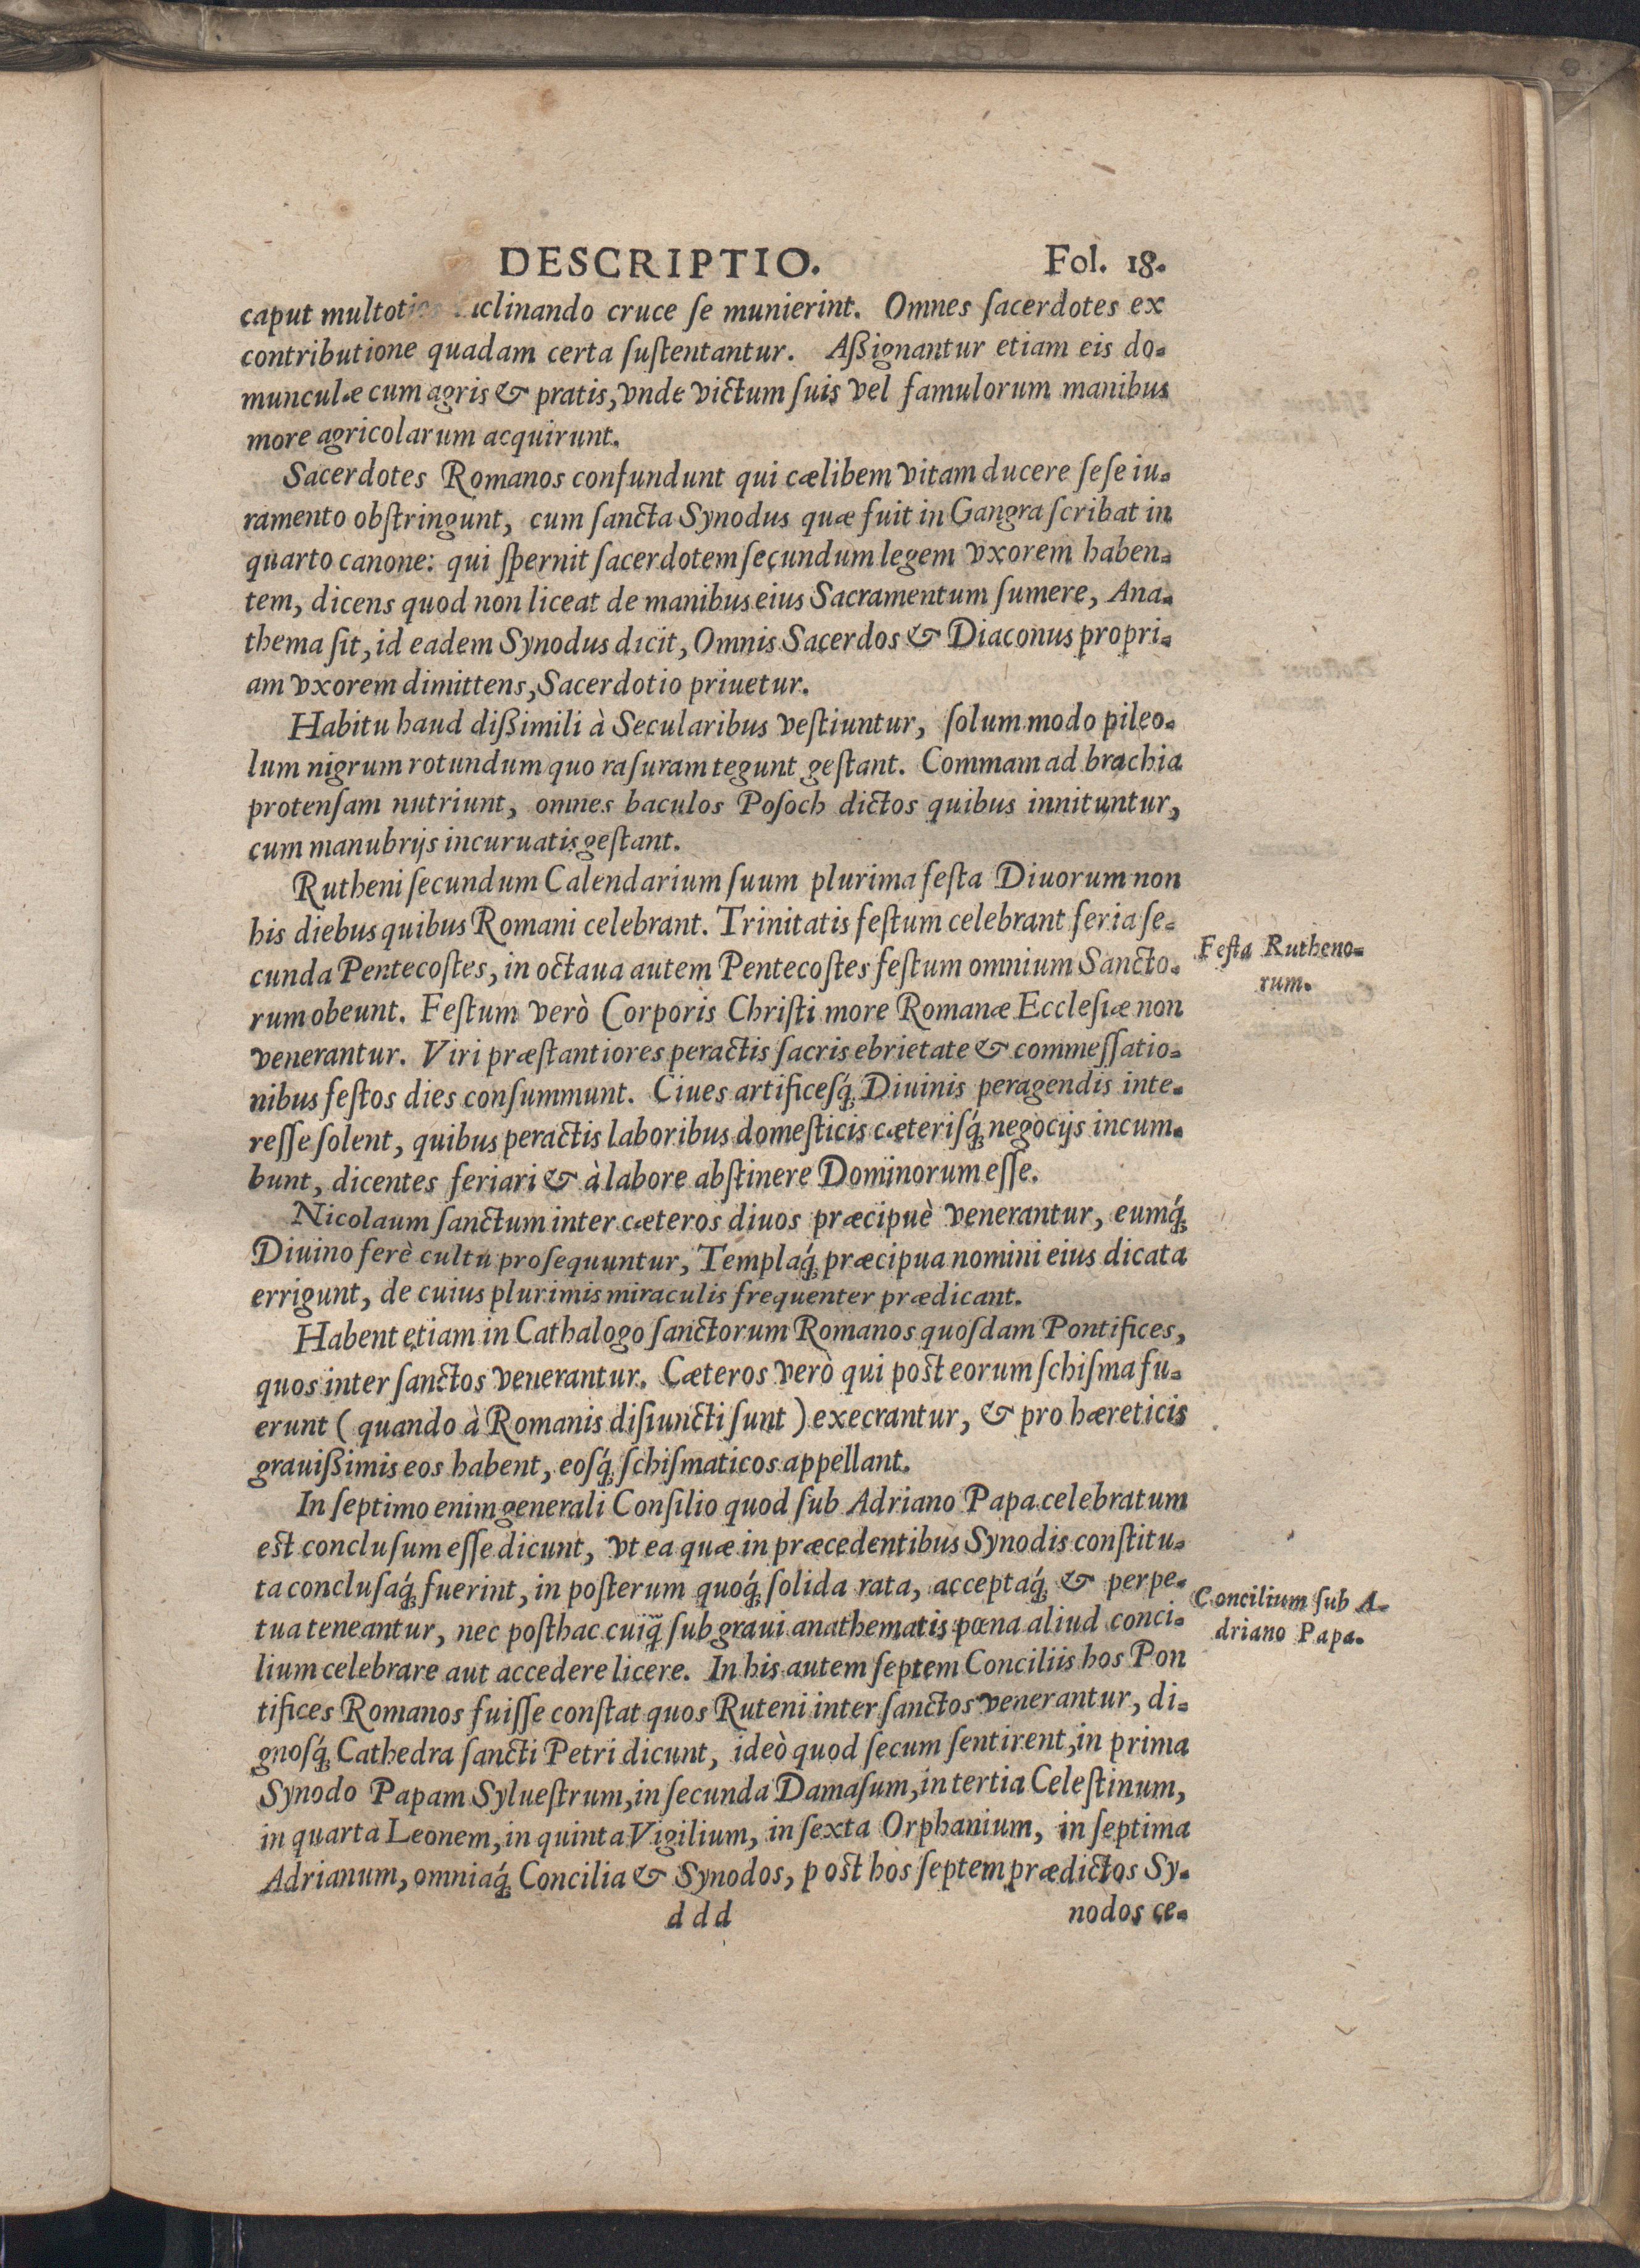 DESCRIPTIO. Fol. 18.
caput multoties clinando cruce ſe munierint. Omnes ſacerdotes ex
contributione quadam certa ſuſtentantur. Aßignantur etiam eis do-
munculæ cum agris & pratis, vnde victum ſuis vel famulorum manibus
more agricolarum acquirunt.
Sacerdotes Romanos confundunt qui cælibem vitam ducere ſeſe iu-
ramento obſtringunt, cum ſancta Synodus quæ fuit in Gangra ſcribat in
quarto canone: qui ſpernit ſacerdotem ſecundum legem vxorem haben-
tem, dicens quod non liceat de manibus eius Sacramentum ſumere, Ana-
thema ſit, id eadem Synodus dicit, Omnis Sacerdos & Diaconus propri-
am vxorem dimittens, Sacerdotio priuetur.
Habitu haud dißimili à Secularibus veſtiuntur, ſolummodo pileo-
lum nigrum rotundum quo raſuram tegunt geſtant. Commam ad brachia
protenſam nutriunt, omnes baculos Poſoch dictos quibus innituntur,
cum manubrijs incuruatis geſtant.
Rutheni ſecundum Calendarium ſuum plurima feſta Diuorum non
his diebus quibus Romani celebrant. Trinitatis feſtum celebrant feria ſe-
cunda Pentecoſtes, in octaua autem Pentecoſtes feſtum omnium Sancto-
rum obeunt. Feſtum verò Corporis Chriſti more Romanæ Eccleſiæ non
venerantur. Viri præſtantiores peractis ſacris ebrietate & commeſſatio-
nibus feſtos dies conſummunt. Ciues artificeſq́; Diuinis peragendis inte-
reſſe ſolent, quibus peractis laboribus domeſticis cæteriſq́; negocijs incum-
bunt, dicentes feriari & à labore abſtinere Dominorum eſſe.
Nicolaum ſanctum inter cæteros diuos præcipuè venerantur, eumq́;
Diuino ferè cultu proſequuntur, Templaq́; præcipua nomini eius dicata
errigunt, de cuius plurimis miraculis frequenter prædicant.
Habent etiam in Cathalogo ſanctorum Romanos quoſdam Pontifices,
quos inter ſanctos venerantur. Cæteros verò qui post eorum ſchiſma fu-
erunt ( quando à Romanis diſiuncti ſunt ) execrantur, & pro hæreticis
grauißimis eos habent, eoſq́; ſchiſmaticos appellant.
In ſeptimo enim generali Conſilio quod ſub Adriano Papa celebratum
est concluſum eſſe dicunt, vt ea quæ in præcedentibus Synodis conſtitu-
ta concluſaq́; fuerint, in poſterum quoq́; ſolida rata, acceptaq́; & perpe-
tua teneantur, nec poſthac cuiq̃; ſub graui anathematis pœna aliud conci-
lium celebrare aut accedere licere. In his autem ſeptem Conciliis hos Pon
tifices Romanos fuiſſe conſtat quos Ruteni inter ſanctos venerantur, di-
gnoſq́; Cathedra ſancti Petri dicunt, ideò quod ſecum ſentirent, in prima
Synodo Papam Sylueſtrum, in ſecunda Damaſum, in tertia Celeſtinum,
in quarta Leonem, in quinta Vigilium, in ſexta Orphanium, in ſeptima
Adrianum, omniaq́; Concilia & Synodos, post hos ſeptem prædictos Sy-
ddd nodos ce-
Feſta Rutheno-
rum.
Concilium ſub A-
driano Papa.